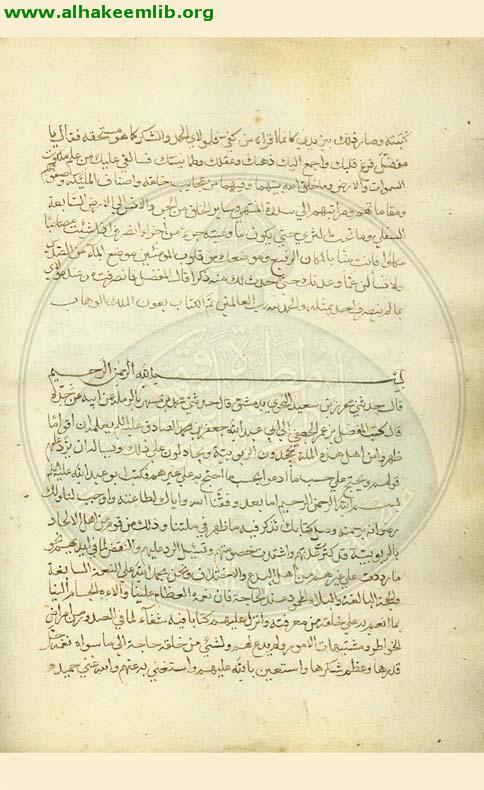 www.alhakeemlib.org
كتبته وصار ذلك بين يدي كانما اقراه من كفي فلمولاي الحمد والشكر كما هو مستحقه فقال يا
مفضل فرغ قلبك واجمع اليك ذهنك وعقلك وطمانينتك فسالقي عليك من علم ملكوت
السموات والارض وما خلق الله بينهما وفيهما من عجايب خلقه واصناف الملئكة وصفوفهم
ومقاماتهم ومراتبهم الى سدرة المنتهى وساير الخلق من الجن والانس الى الارض السابعة
السفلى وما تحت الثرى حتى يكون ما وعيته جزء من اجزاء انصرف اذا شئت مصاحبا
مكلوا فانت منا بالمكان الرفيع وموضعك من قلوب المومنين موضع الماء من الصدى
ولا تسالن عما وعدتك حتى احدث لك منه ذكرا قال المفضل فانصرفت من عند مولاي
بما لم ينصرف احد بمثله والحمد لله رب العالمين تم الكتاب بعون الملك الوهاب
بسم الله الرحمن الرحيم
قال حدثني محرز بن سعيد النحوي بدمشق قال حدثني محمد بن بالرملة عن ابيه عن جده
قال كتب المفضل بن عمر الجعفي الى ابي عبد الله جعفر بن محمد الصادق عليه السلام يعلمه ان اقواما
ظهروا من اهل هذه الملة يجحدون الربوبية ويجادلون على ذلك ويساله ان يرد عليهم
قولهم ويحتج عليهم حسب ما ادعوا بحسب ما احتج به على غيرهم فكتب ابو عبد الله عليه السلم
بسم الله الرحمن الرحيم اما بعد وفقنا الله واياك لطاعته واوجب لنا ولك
رضوانه برحمته وصل كتابك تذكر فيه ما ظهر في ملتنا وذلك من قوم من اهل الالحاد
بالربوبية قد كثرت عدتهم واشتدت خصومتهم وتسئل الرد عليهم والنقض لما في ايديهم نحو
ما رددت على غيرهم من اهل البدع والاختلاف ونحن نحمد الله على النعمة السابغة
والحجة البالغة والبلاء المحمود عند الخاصة فان نعمه العظام علينا والاءه الجسام الينا
بما انعم به على خلقه من معرفته وانزل عليهم كتابا فيه شفاء لما في الصدور من امراض
الخواطر ومشتبهات الامور ولم يدع لهم ولشئ من خلقه حاجة الى ما سواه نعمة جل
قدرها وعظم شكرها واستعين بالله عليهم واستغنى به عنهم والله غني حميد